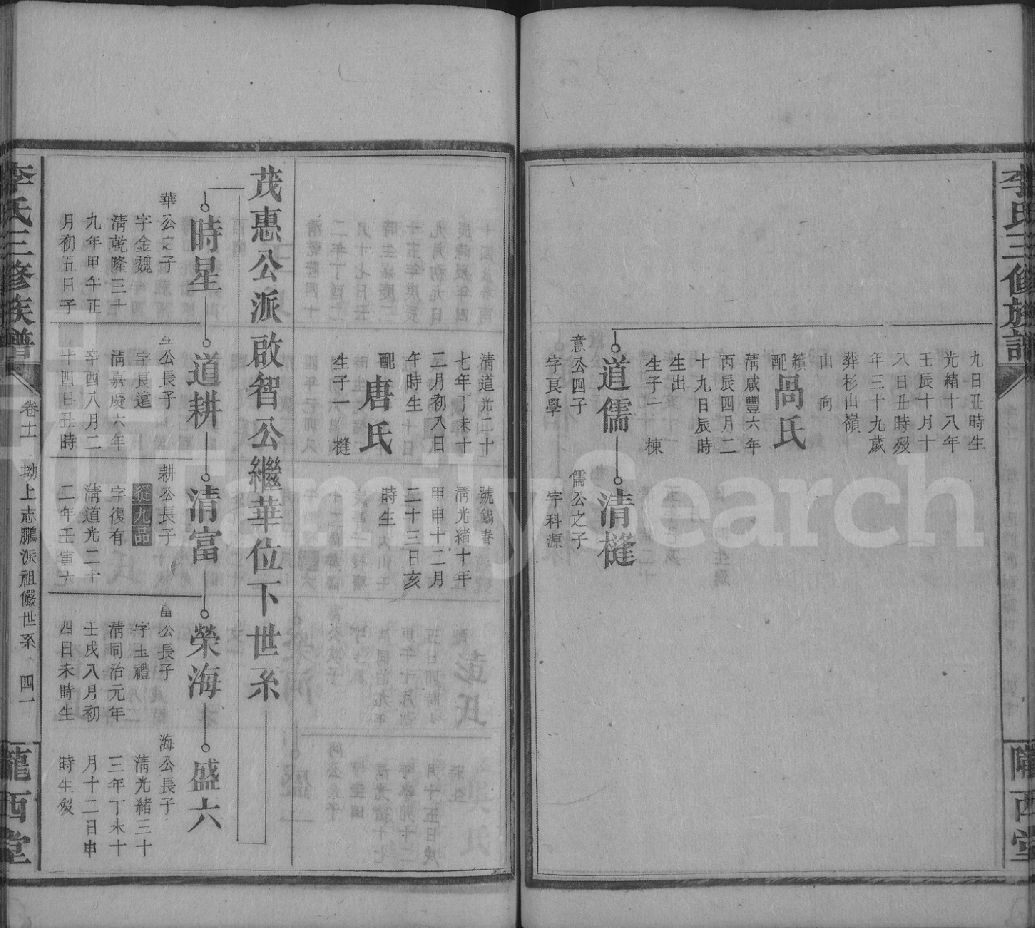 李氏三修族譜
隴西堂
九日丑時生
光緒十八年
壬辰十月十
八日丑時殁
年三十九歲
葬杉山嶺
山向
續配
高氏
清咸豐六年
丙辰四月二
十九日辰時
生出
生子一 棟
道儒
意公四子
字良學
清槿
儒公之子
字科源
清道光二十
七年丁未十
二月初八日
午時生
配
唐氏
生子一 槿
號錫春
清光緒十年
甲申十二月
二十三日亥
時生
茂惠公派啟智公繼華位下世系
時星
華公之子
字金魏
清乾隆三十
九年甲午正
月初五日子
道耕
星公長子
字長遠
清嘉慶六年
辛酉八月二
十四日丑時
清富
耕公長子
從九品
字復有
清道光二十
二年壬寅六
榮海
富公長子
字玉禮
清同治元年
壬戌八月初
四日未時生
盛六
海公長子
清光緒三十
三年丁未十
月十二日申
時生殁
李氏三修族譜
卷十二
坳上志鵬派祖儼世系
四一
隴西堂
FamilySearch